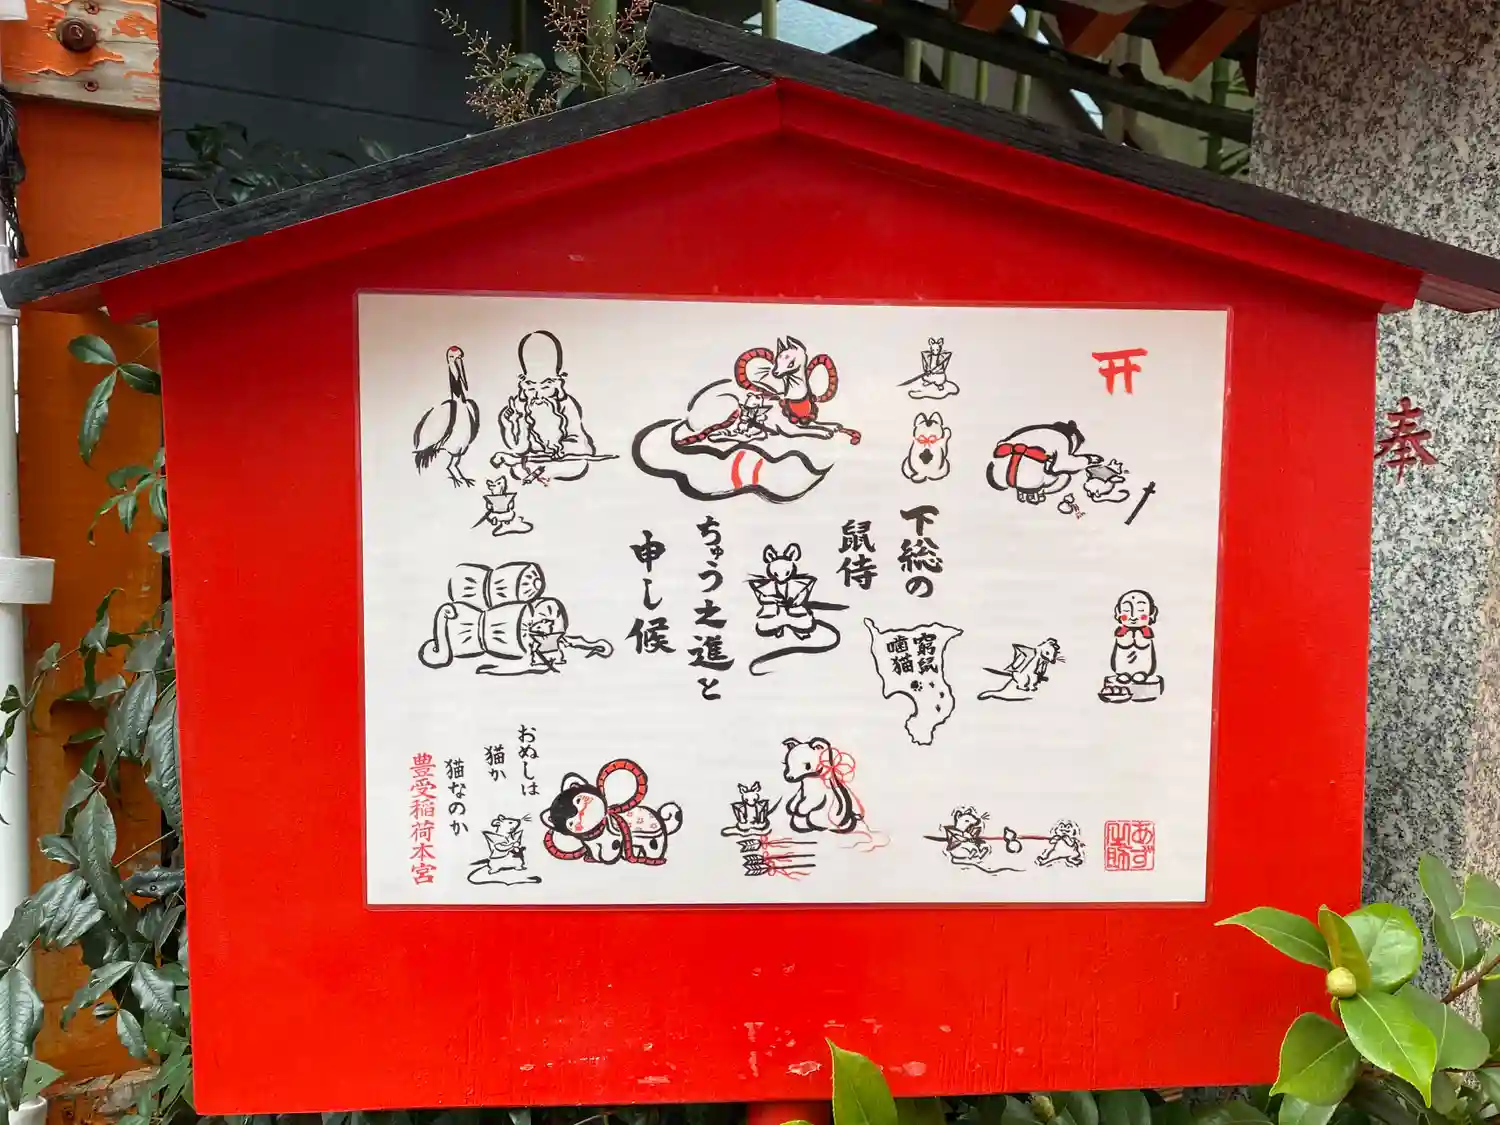 下総の
鼠侍
ちゅう之進と
申し候
窮鼠
噛猫
おぬしは
猫か
猫なのか
豊受稲荷本宮
奉